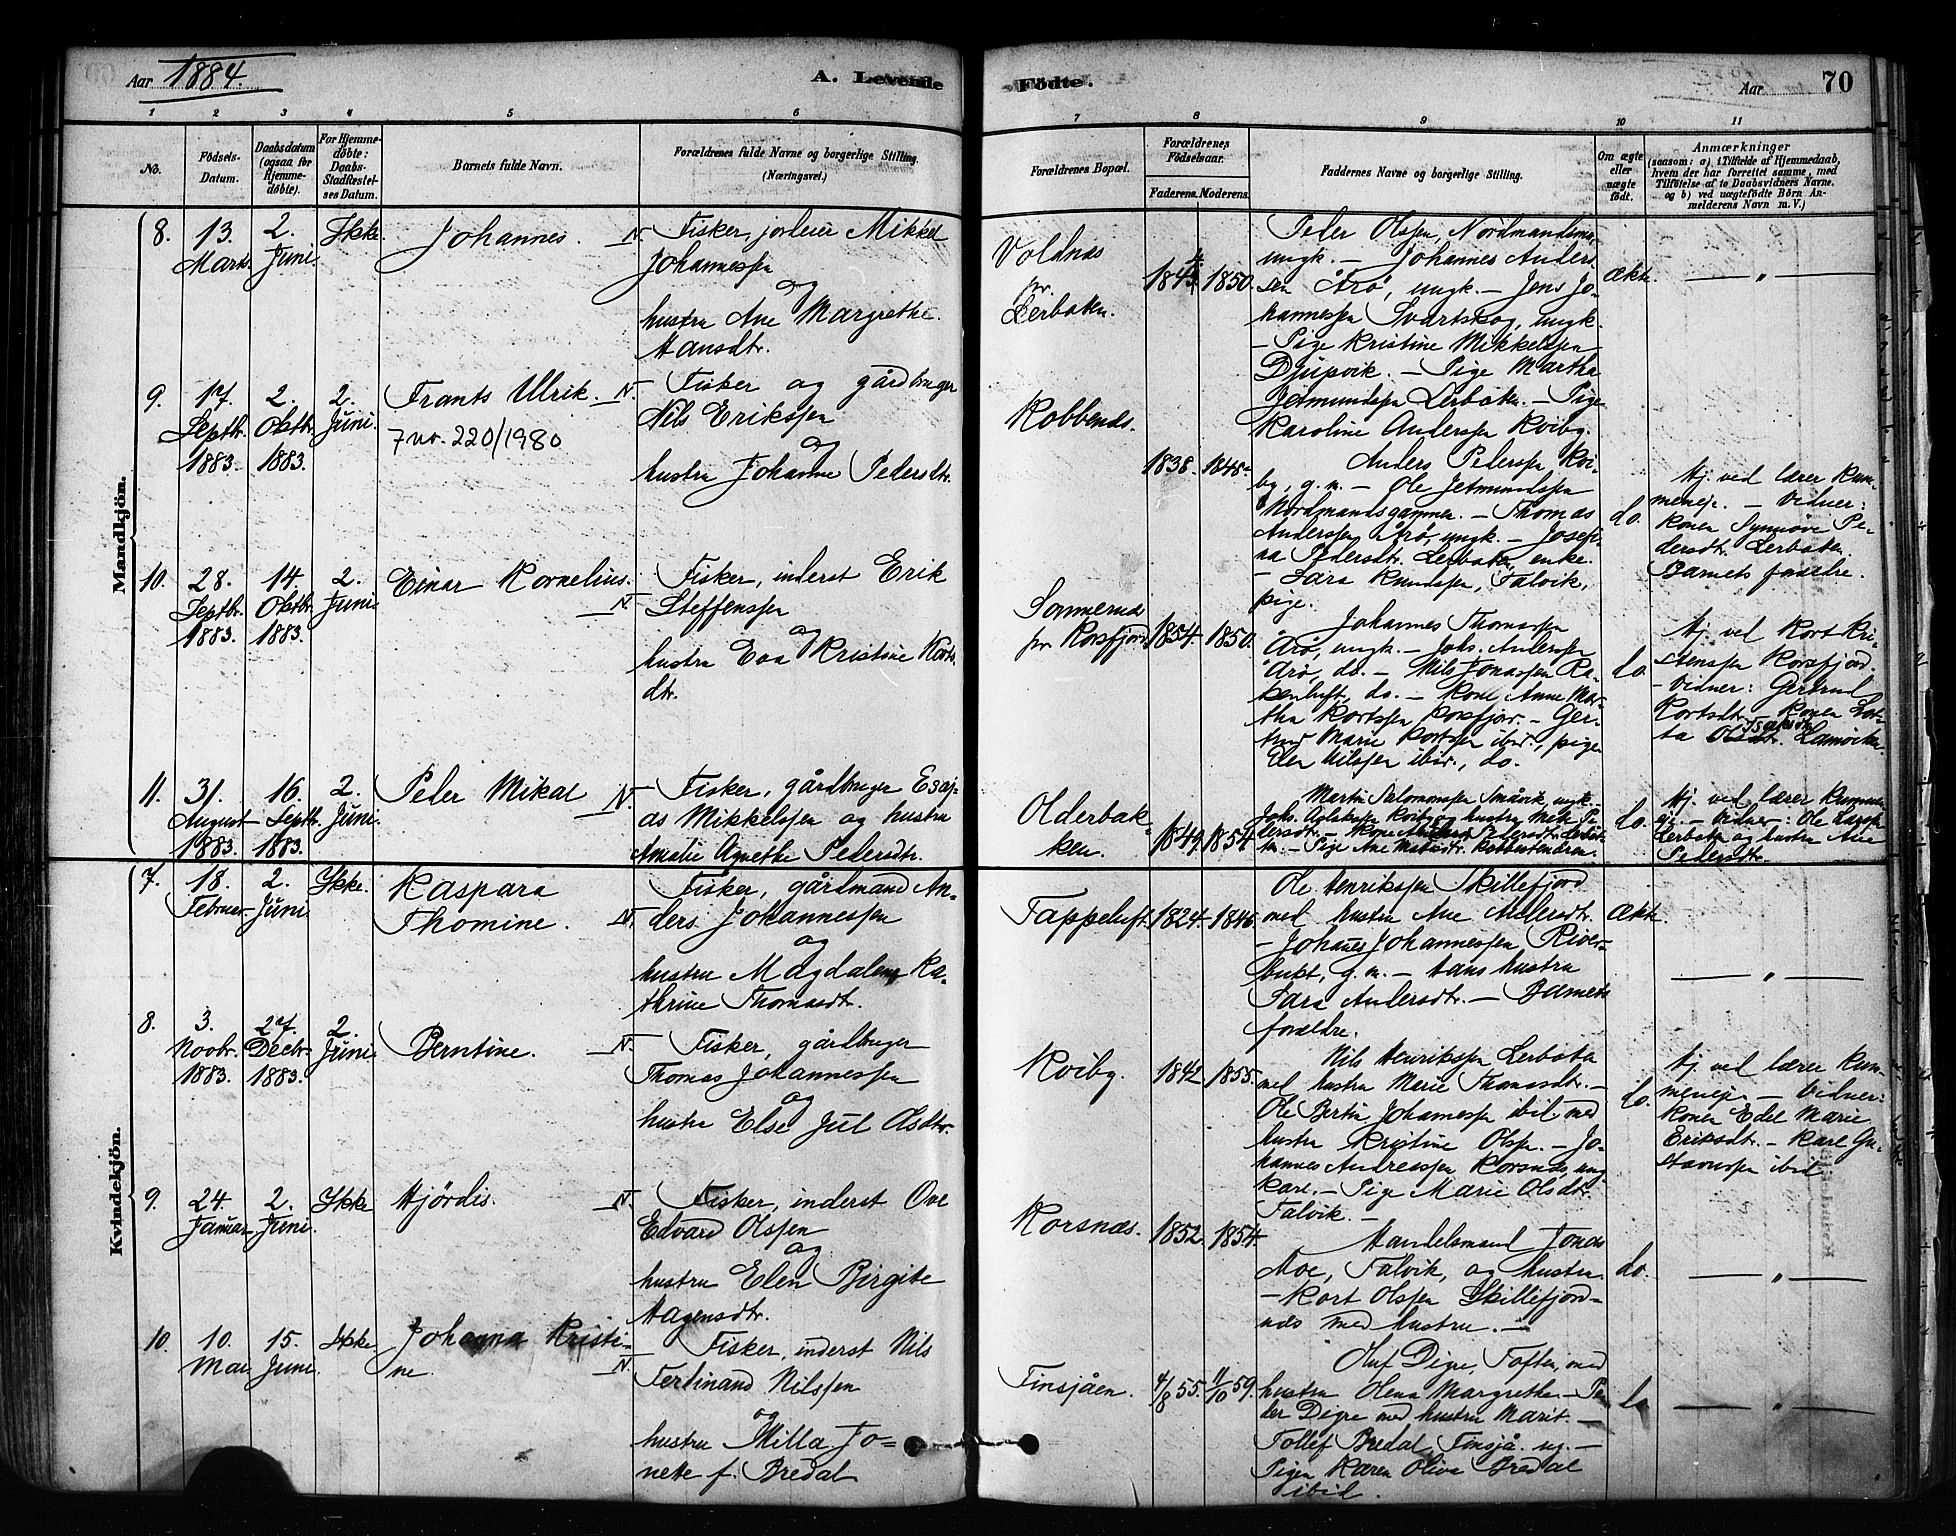 Aar 1884.
A. Levende
Födte.
Aar
70
1 2 3 4 5 6 7 8 9 10 11
No.
Födsels-
Datum.
Daabsdatum
(ogsaa for
Hjemme-
døbte).
For Hjemme-
døbte:
Daabs-
Stadfæstel-
ses Datum.
Barnets fulde Navn.
Forældrenes fulde Navne og borgerlige Stilling.
(Næringsvei.)
Forældrenes Bopæl.
Forældrenes
Födselsaar.
Faderens. Moderens.
Faddernes Navne og borgerlige Stilling.
Om ægte
eller
uægte
født.
Anmærkninger
(saasom: a) i Tilfælde af Hjemmedaab,
hvem der har forrettet samme, med
Tilföielse af to Daabsvidners Navne.
og b) ved uægtefødte Börn An-
melderens Navn m. V.)
Mandkjön.
8.
13.
Marts.
2.
Juni.
Ikke.
Johannes.
N.
Fisker, jorleier Mikkel
Johannessen
og
hustru Ane Margrethe
Hansdtr.
Voldnæs
pr.
Lerbaten.
1850.
Peder Olssen, Nordmandsnes,
ungk. – Johannes Anders
sen Årø, ungk. – Jens Jo-
hannessen Svartskog, ungk.
– Pige Kristine Mikkelssen
Djupvik. – Pige Martha
Jetmundssen Lerbaten. – Pige
Karoline Anderssen Kviby.
Ækte.
— " —
9.
17.
Septbr.
1883.
2.
Oktbr.
1883.
2.
Juni.
Frants Ulrik.
N.
7 no. 220/1980
Fisker og gårdbruger
Nils Erikssen
og
hustru Johanne Pedersdtr.
Kobbenes.
1838. 1848.
Anders Pederssen Kvi-
by, g. m. – Ole Jetmundssen
Nordmandsgammen. – Thomas
Anderssen Årø, ungk. – Josefi-
na Pedersdtr. Lerbaten, enke.
– Sara Knudssen, Talvik,
pige.
do.
Hj. ved lærer Kum-
meneje. – Vidner:
Konen Synnøve Pe-
dersdtr. Lerbaten.
Barnets forældre.
10.
28.
Septbr.
1883.
14.
Oktbr.
1883.
2.
Juni.
Einar Kornelius.
N.
Fisker, inderst Erik
Steffenssen
og
hustru Eva Kristine Korts-
dtr.
Sommernæs
pr. Korsfjord
1854. 1850.
Johannes Thomassen
Årø, ungk. – Johs. Anderssen
Årø, do. – Nils Jonassen Ra-
kenluft, do. – Kone Anne Mar-
tha Kortssen Korsfjor. – Ger-
trud Marie Kortssen ibid., pige
Elen Nilssen ibid., do.
do.
Hj. ved Kort Kri-
stenssen Korsfjord.
– Vidner: Gertrud
Kortsdtr. Konen Lot-
ta
11.
31.
August
1883.
16.
Septb.
1883.
2.
Juni.
Peder Mikal
N.
Fisker, gårdbruger Esaj-
as Mikkelssen og hustru
Amalie Agnethe Pedersdtr.
Olderbak-
ken.
1849. 1854.
Martin Salomonssen Småvik, ungk. –
do.
Hj. ved lærer Kumme-
neje. – Vidner: Ole Larssen
Lerbaten og hustru Ane
Pedersdtr.
Kvindekjön.
7.
18.
Februar
2.
Juni
Ikke.
Kaspara
Thomine.
N.
Fisker, gårdmand An-
ders Johannessen
og
hustru Magdalena Ka-
thrine Thomasdtr.
Tappeluft.
1824. 1846.
Ole Henrikssen Skillefjord
med hustru Ane Andersdtr.
– Johanes Johannessen, River-
bukt, g. m. – hans hustru
Sara Andersdtr. – Barnets
forældre.
Ækte.
— " —
8.
3.
Novbr.
1883.
27.
Decbr.
1883.
2.
Juni.
Berntine.
N.
Fisker, gårdbruger
Thomas Johannessen
og
hustru Else Jul Olsdtr.
Kviby.
1842 1855.
Nils Henrikssen Lerbaten
med hustru Marie Thomasdtr. –
Ole Bertin Johannessen ibid. med
hustru Kristine Olssen. – Jo-
hannes Andreassen Korsnæs, ung
karl. – Pige Marie Olsdtr.
Talvik. –
do.
Hj. ved lærer Kum-
meneje – Vidner:
Konen Edel Marie
Eriksdtr. – Karl Gu-
stavussen ibid.
9.
24.
Januar
2.
Juni.
Ikke
Hjördis.
N.
Fisker, inderst Ove
Edvard Olssen
og
hustru Elen Birgite
Hagensdtr.
Korsnæs.
1852 1854.
Handelsmand Jonas
Moe, Talvik, og hustru.
– Kort Olssen Skillefjord-
nes med hustru. –
do.
— " —
10.
10.
Mai
15.
Juni.
Ikke
Johanna Kristi-
ne.
N.
Fisker, inderst Nils
Ferdinand Nilssen
og
hustru Milla Jo-
nette f. Bredal
Finsjåen.
4/8 55. 11/10 59.
Oluf Digre, Toften, med
hustru Olena Margrethe. – Pe-
der Digre med hustru Marit. –
Tollef Bredal, Finsjå. ug. –
Pigen Karen Oliva Bredal
ibid.
do
— " —